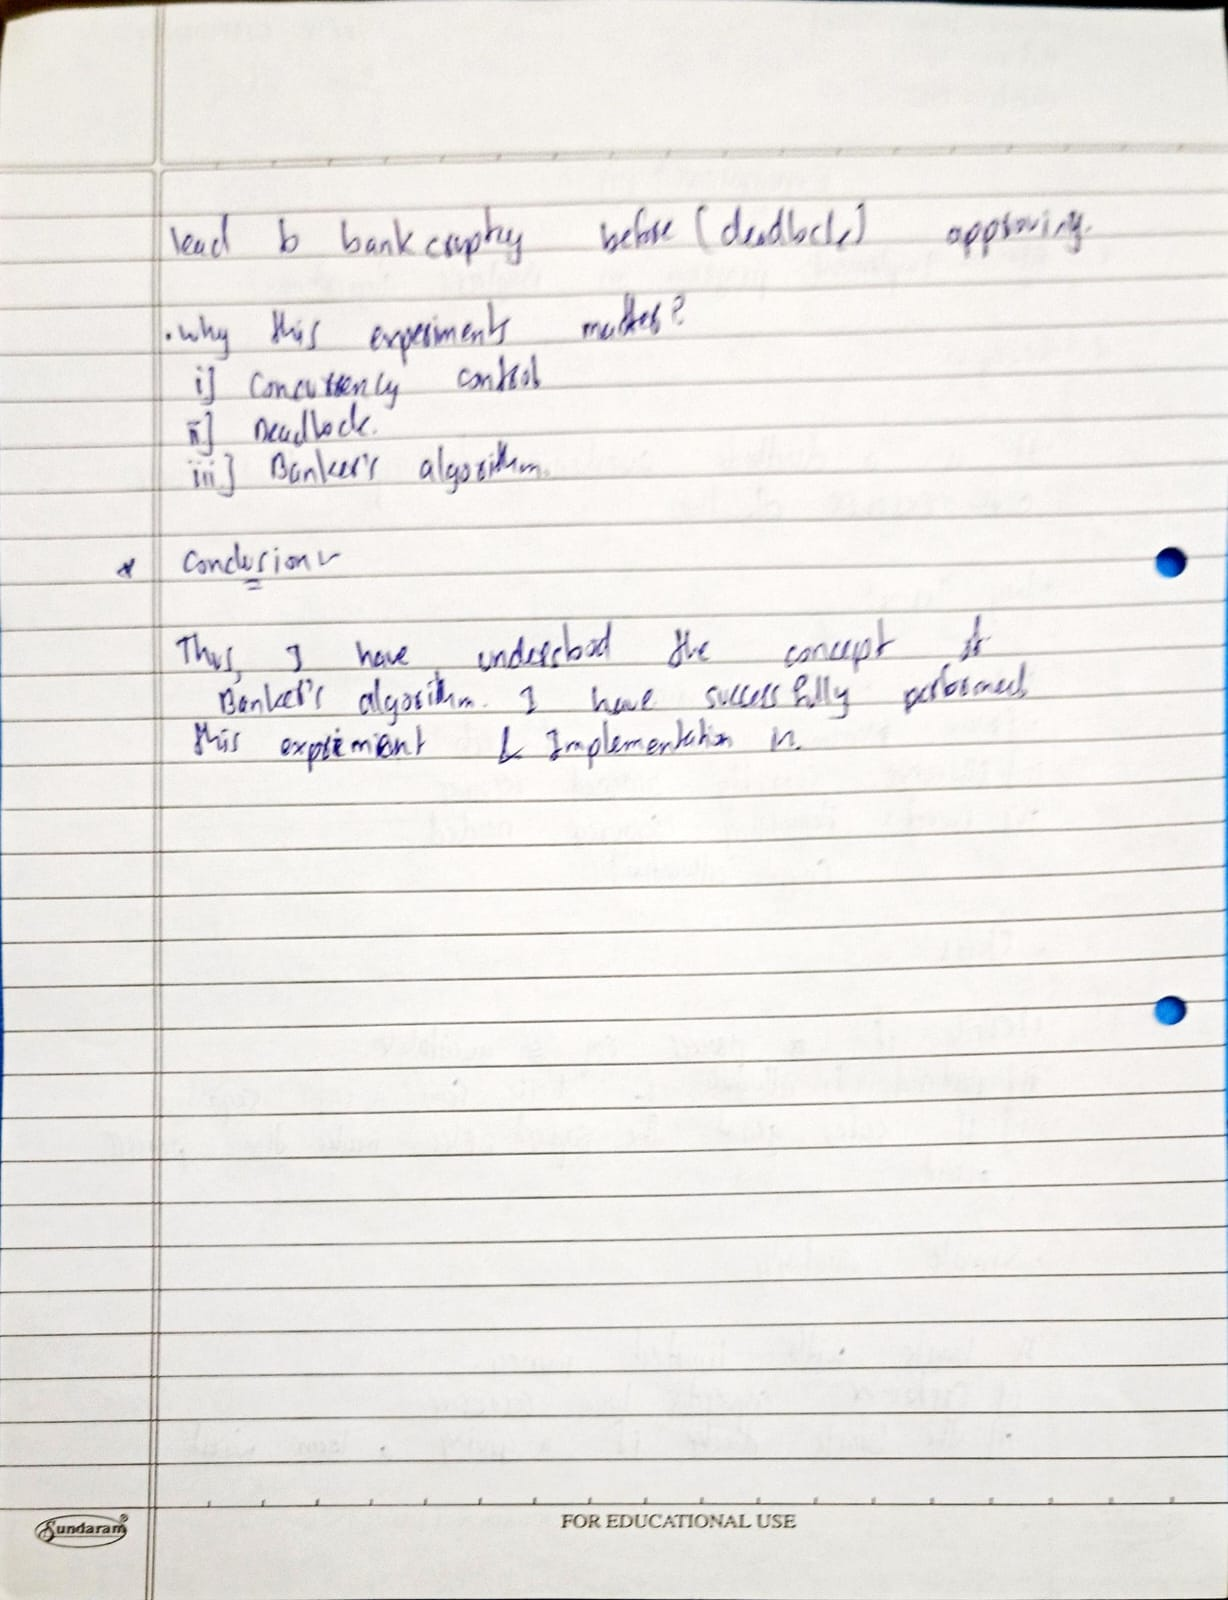 lead to bankcruptcy before (deadlock) approving.
. Why this experiments matter?
i] Concurrency control
ii] Deadlock.
iii] Banker's algorithm.
* Conclusion :-
Thus, I have understood the concept of
Banker's algorithm. I have successfully performed
this expriment & Implementation it.
Sundaram®
FOR EDUCATIONAL USE